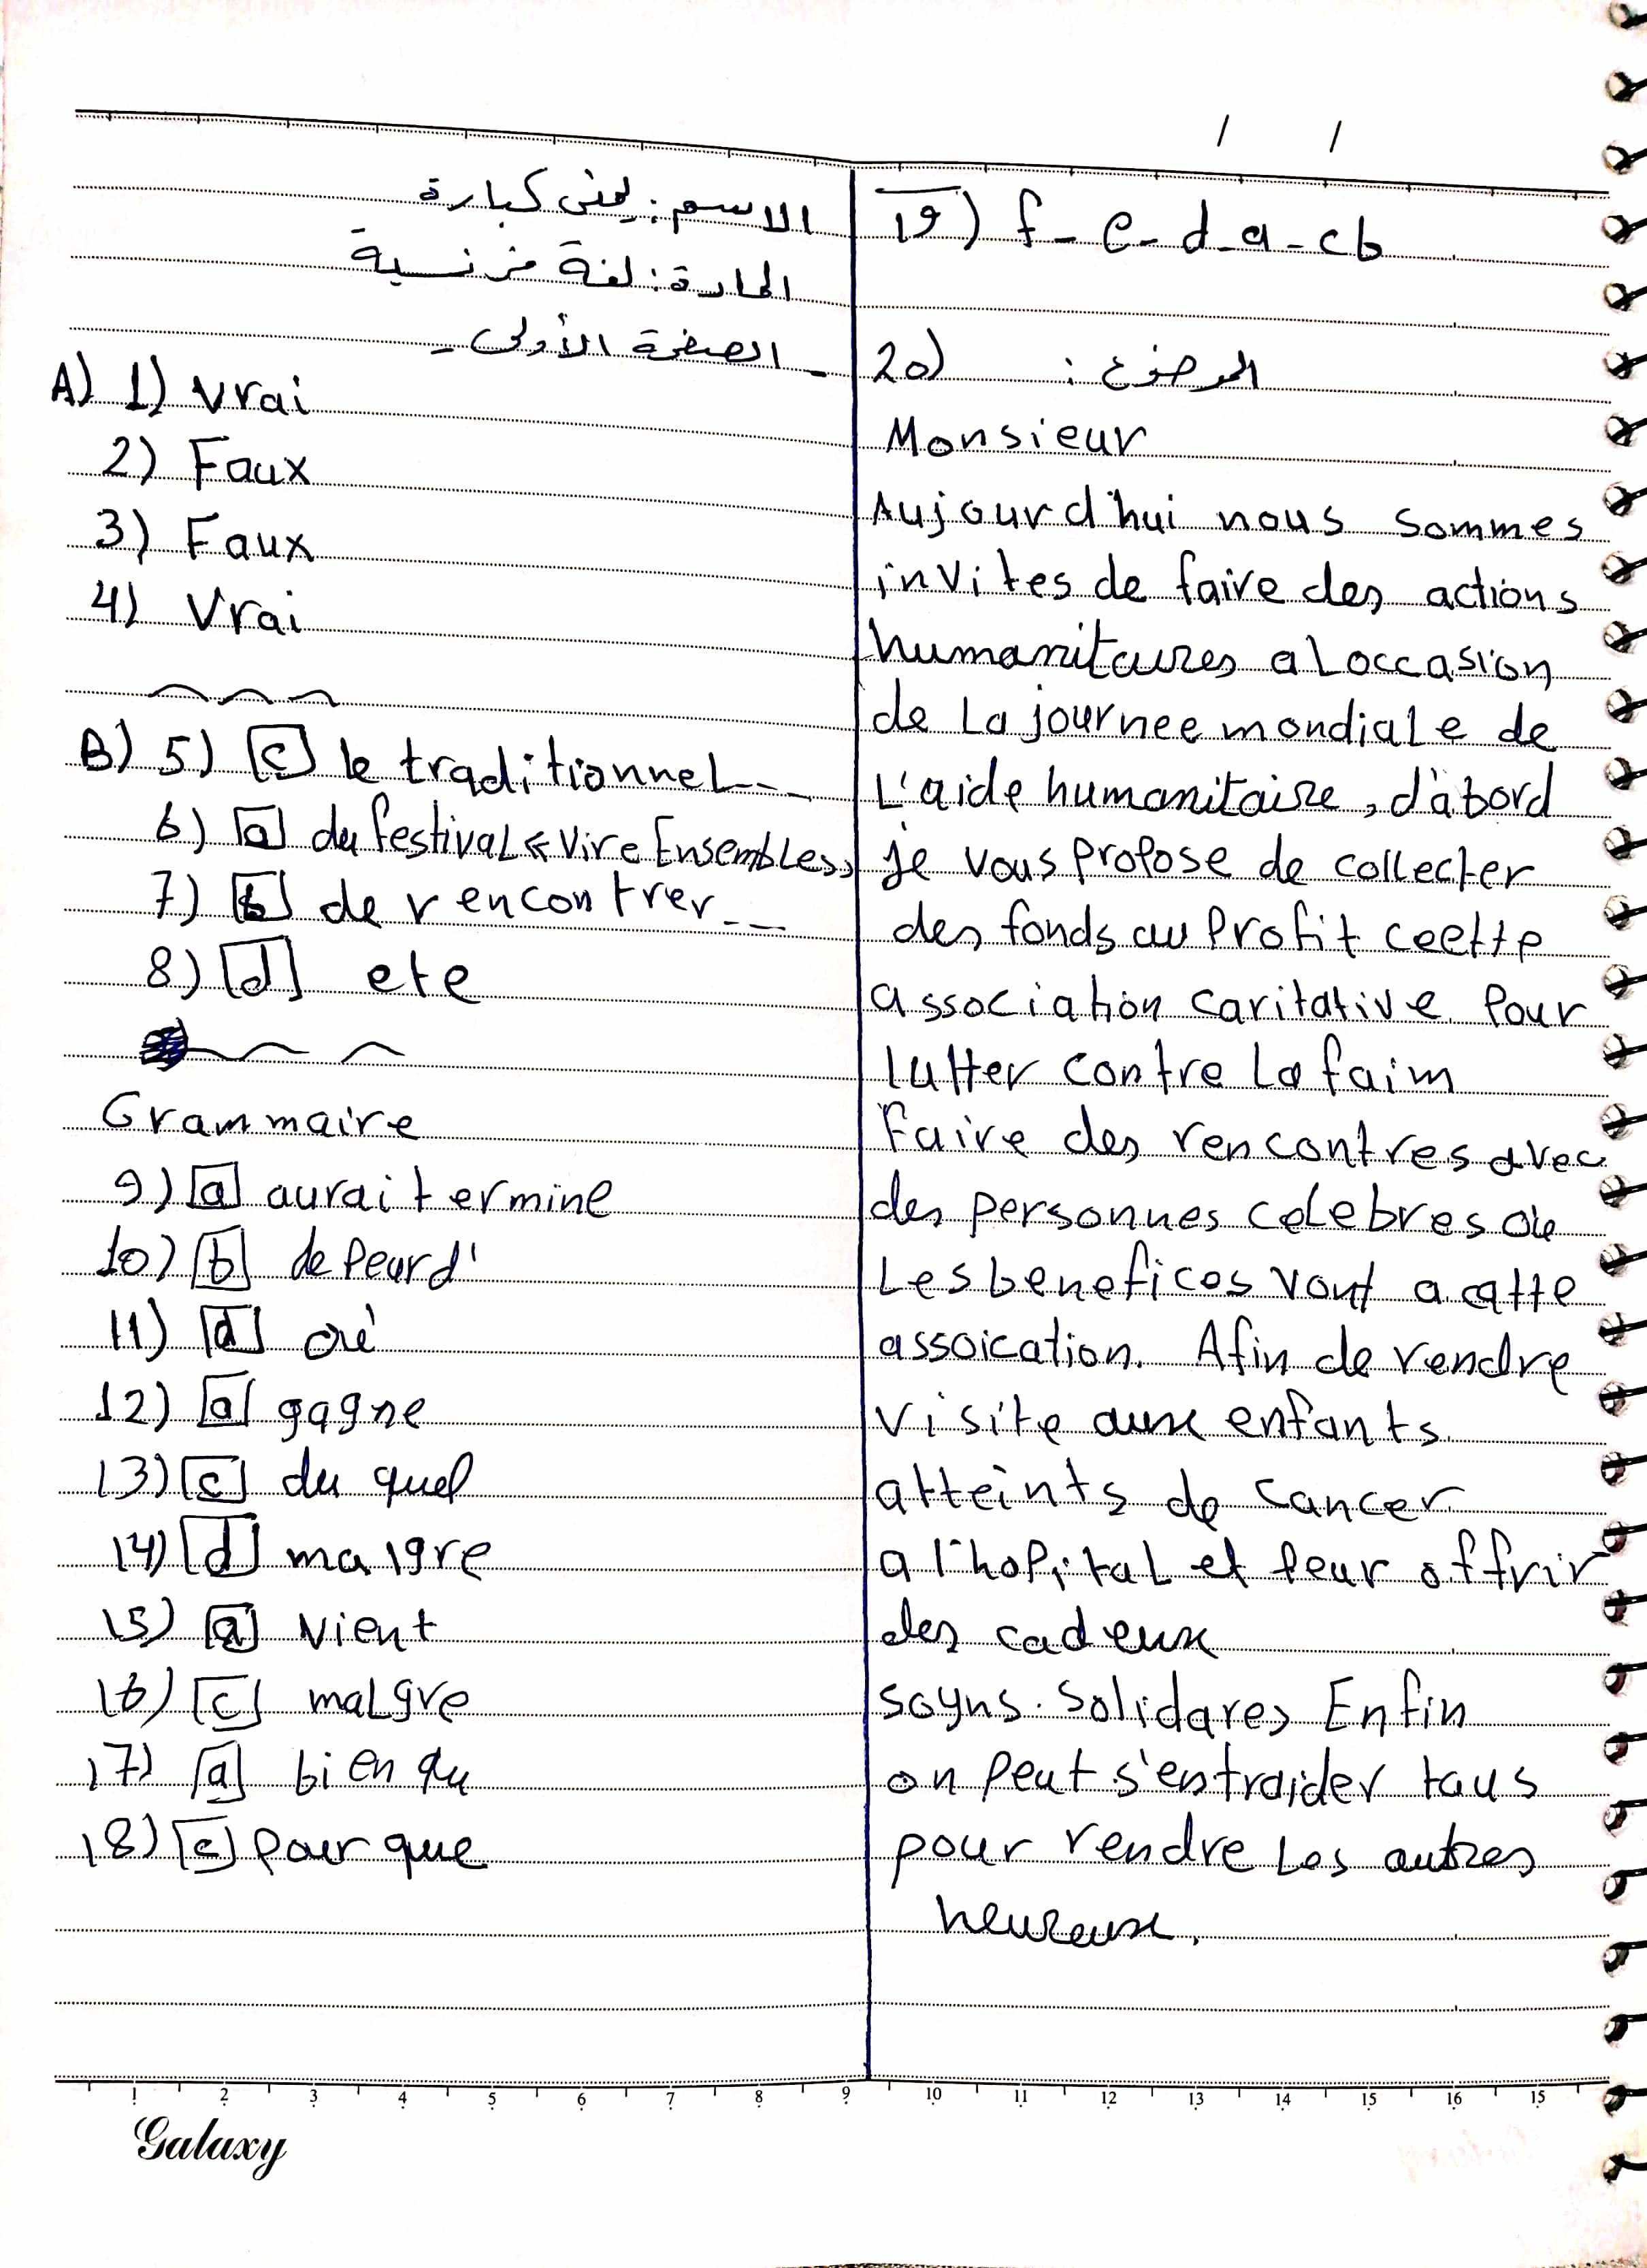 الاسم: يمنى كبارة
المادة: لغة فرنسية
- الصفحة الأولى -
A) 1) Vrai
2) Faux
3) Faux
4) Vrai
B) 5) [c] le traditionnel---
6) [a] du festival « Vire Ensembles »
7) [b] de rencontrer---
8) [d] ete
Grammaire
9) [a] aurait ermine
10) [b] de peur d'
11) [d] où
12) [a] gagne
13) [c] du quel
14) [d] malgre
15) [a] vient
16) [c] malgre
17) [a] bien qu
18) [c] pour que
19) f - e - d - a - c b
20) الموضوع :
Monsieur
Aujourd'hui nous sommes
invites de faire des actions
humanitaires a l occasion
de la journee mondiale de
L'aide humanitaire, d'abord
je vous propose de collecter
des fonds au profit ceette
association caritative pour
lutter contre la faim
Faire des rencontres avec
des personnes celebres où
Les benefices vont a cette
assoication. Afin de rendre
visite aux enfants
atteints de cancer
a l'hopital et leur offrir
des cadeux
soyns. Solidares Enfin
on peut s'entraider tous
pour rendre les autres
heureux.
1 2 3 4 5 6 7 8 9 10 11 12 13 14 15 16 15
Galaxy